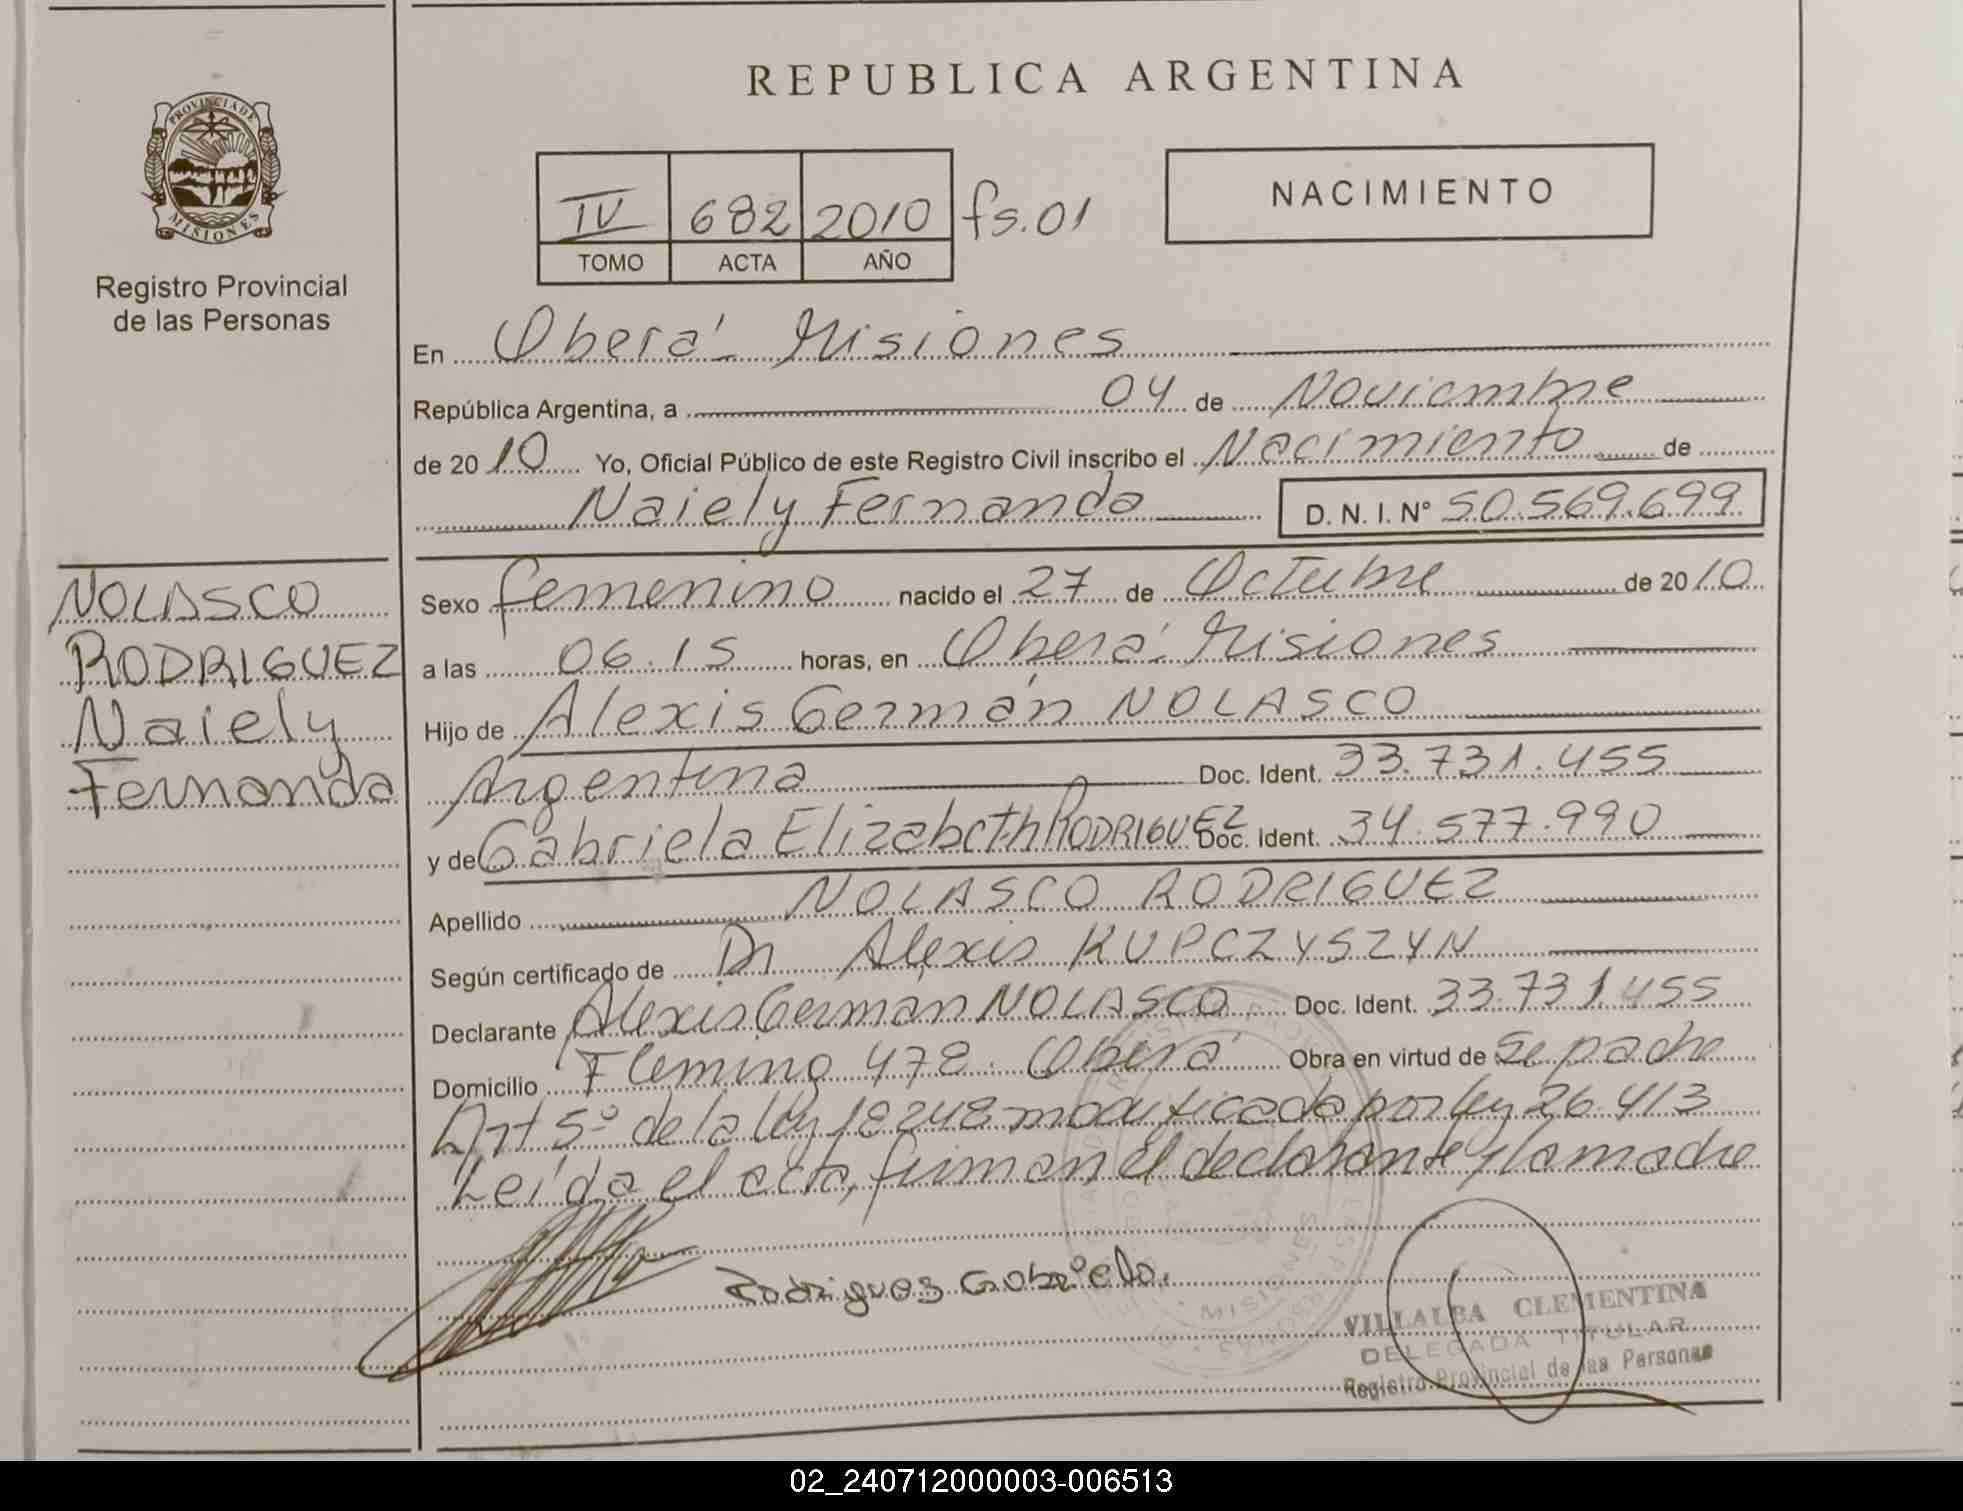 REPUBLICA ARGENTINA
PROVINCIA DE
MISIONES
Registro Provincial
de las Personas
IV 682 2010 fs.01
TOMO ACTA AÑO
NACIMIENTO
En Oberá - Misiones
República Argentina, a 04 de Noviembre
de 2010 Yo, Oficial Público de este Registro Civil inscribo el Nacimiento de
Naiely Fernanda D. N. I. Nº 50.569.699
NOLASCO
RODRIGUEZ
Naiely
Fernanda
Sexo femenino nacido el 27 de Octubre de 2010
a las 06.15 horas, en Oberá - Misiones
Hijo de Alexis Germán NOLASCO
Argentina Doc. Ident. 33.731.455
y de Gabriela Elizabeth RODRIGUEZ Doc. Ident. 34.577.990
Apellido NOLASCO RODRIGUEZ
Según certificado de Dr Alexis KUPCZYSZYN
Declarante Alexis Germán NOLASCO Doc. Ident. 33.731.455
Domicilio Fleming 478 - Oberá Obra en virtud de Se padre
Art 5º de la ley 18248 modificada por ley 26.413
Leída el acta, firman el declarante y la madre
Rodriguez Gabriela.
MISIONES
VILLALBA CLEMENTINA
DELEGADA TITULAR
Registro Provincial de las Personas
02_240712000003-006513